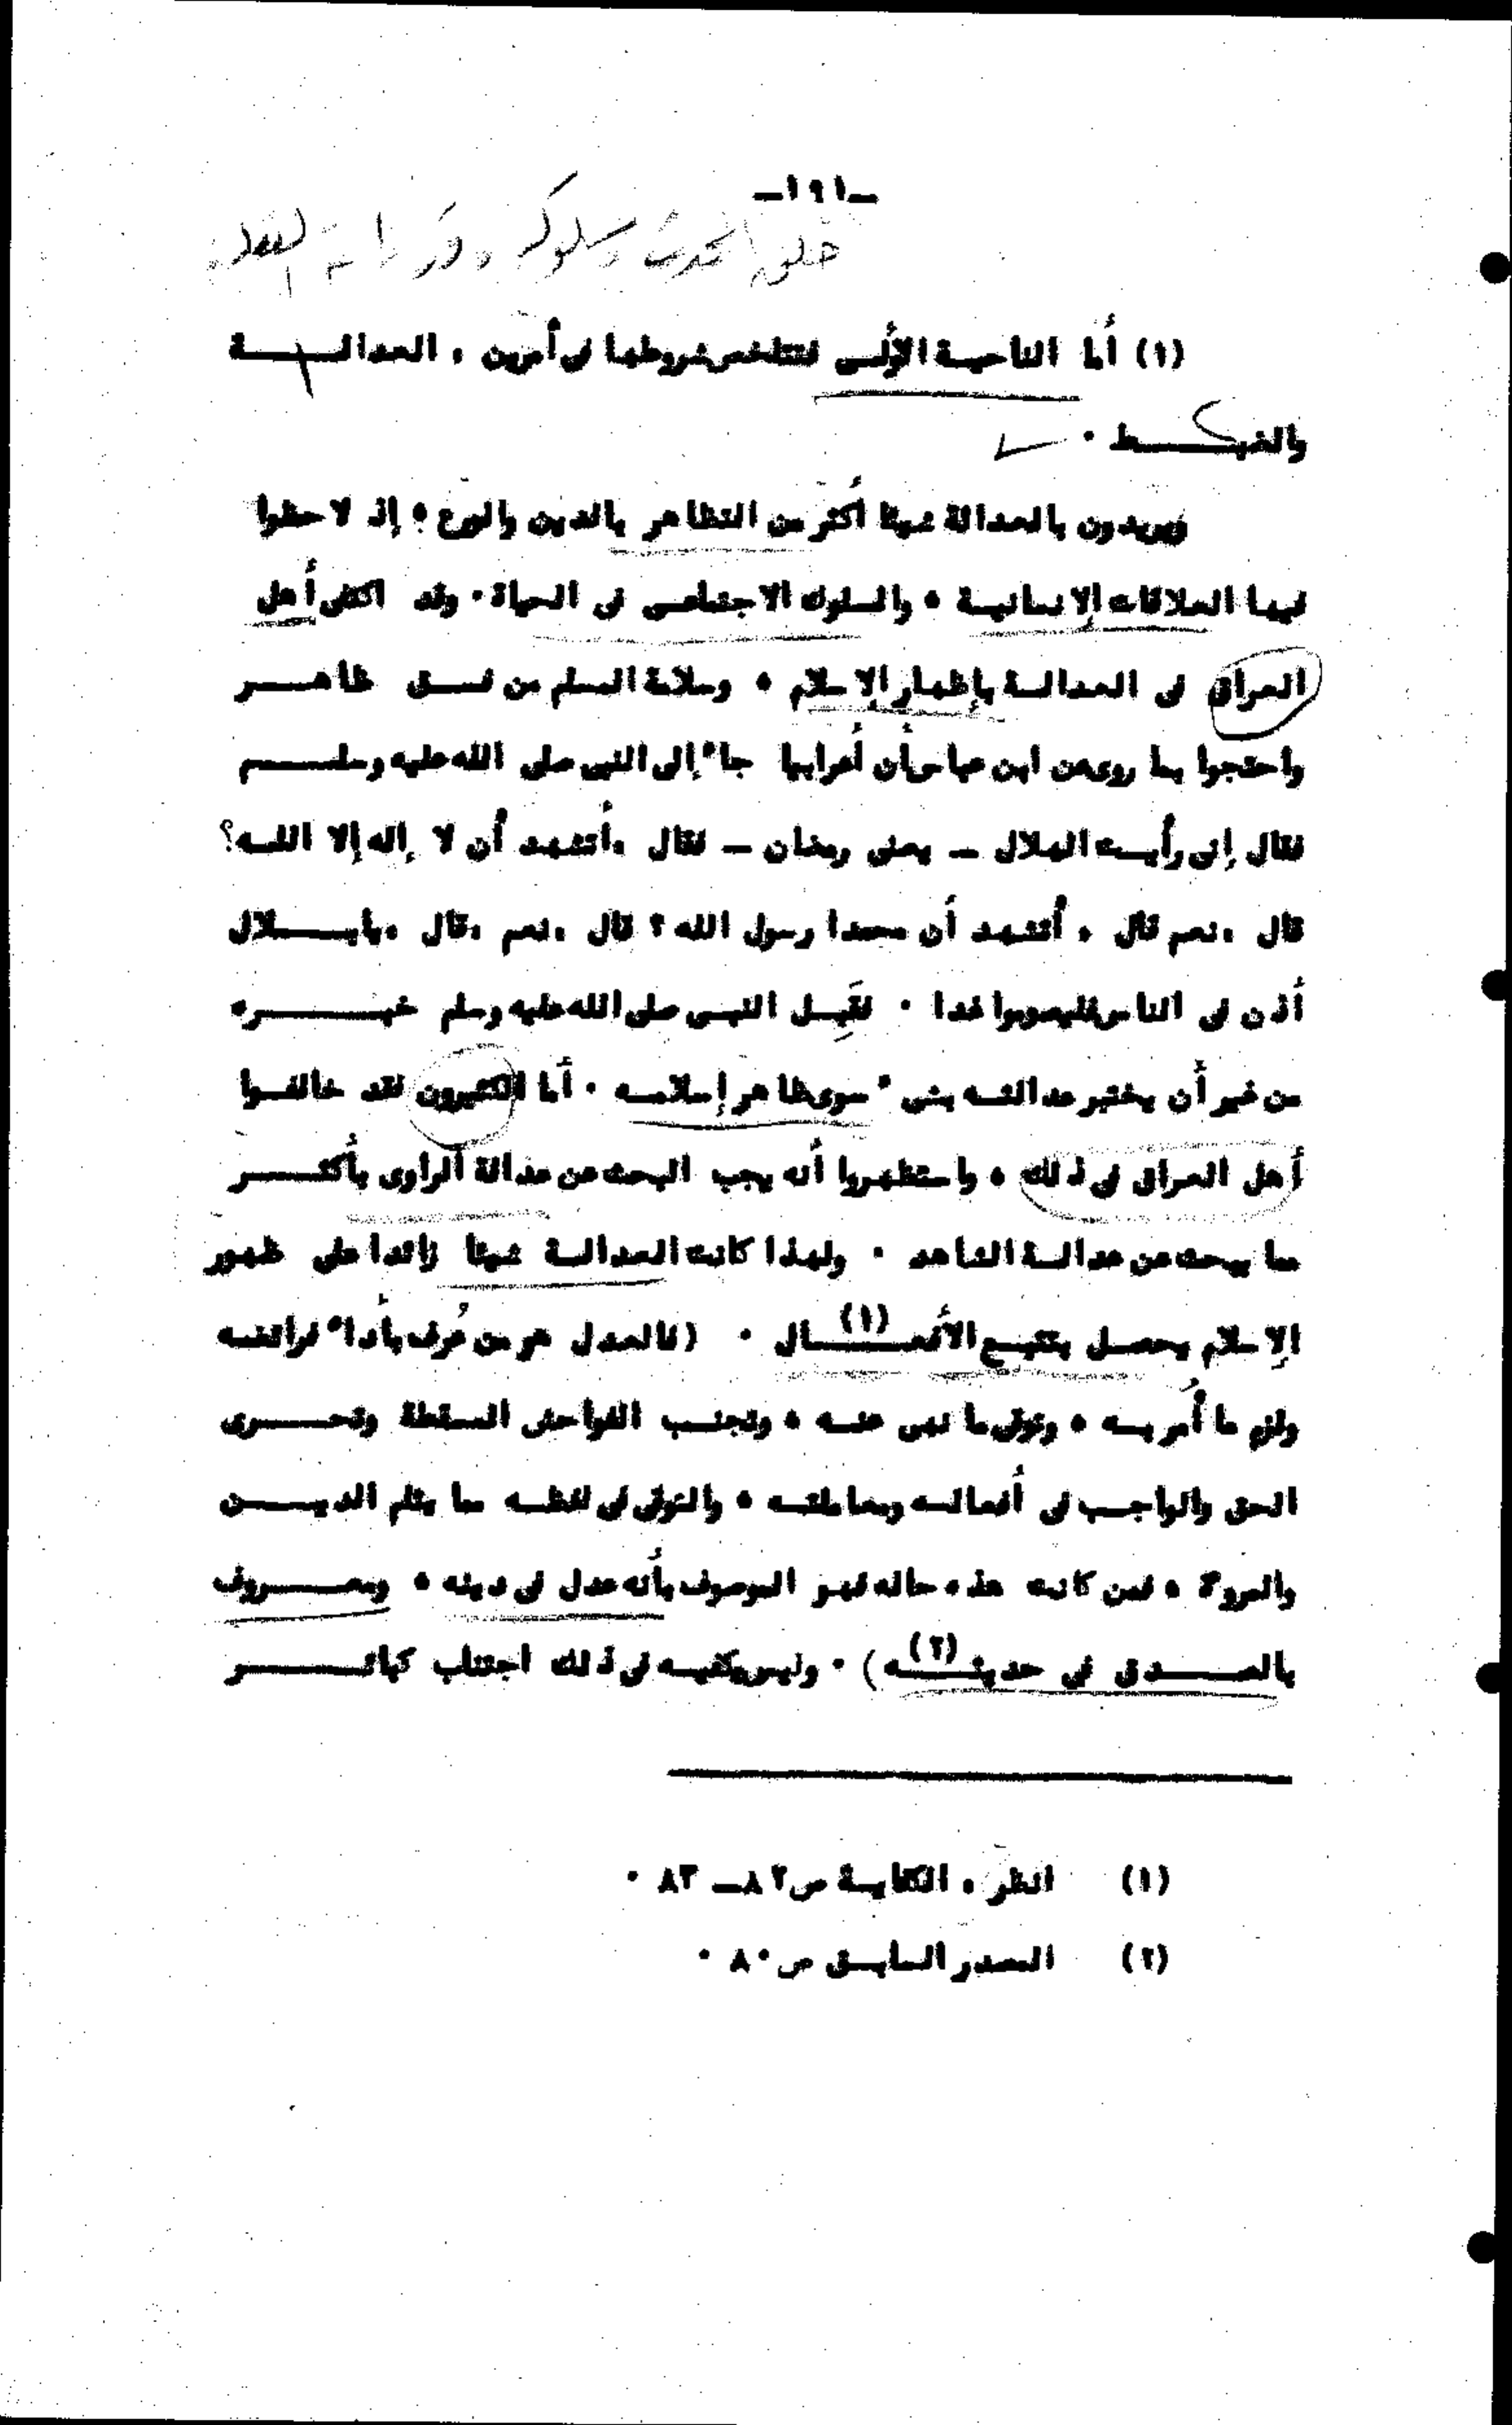 -١٩١-
خلق المحدث وسلوكه
(١) أما الناحية الأولى فتتلخص شروطها فى أمرين ، العدالة
والضبط ٠
ويريدون بالعدالة شيئا أكثر من التظاهر بالدين والورع ؛ إذ لاحظوا
فيها العلاقات الإنسانية ، والسلوك الاجتماعى فى الحياة ٠ وقد اكتفى أهل
العراق فى العدالة بإظهار الإسلام ، وسلامة المسلم من فسق ظاهر
واحتجوا بما روى عن ابن عباس أن أعرابيا جاء إلى النبى صلى الله عليه وسلم
فقال إنى رأيت الهلال - يعنى رمضان - فقال ،أتشهد أن لا إله إلا الله؟
قال ،نعم قال ، أتشهد أن محمدا رسول الله ؟ قال ،نعم ،قال ،يابلال
أذن فى الناس فليصوموا غدا ٠ فقَبِل النبى صلى الله عليه وسلم خبره
من غير أن يختبر عدالته بشىء سوى ظاهر إسلامه ٠ أما الكثيرون فقد خالفوا
أهل العراق فى ذلك ، واستظهروا أنه يجب البحث عن عدالة الراوى بأكثر
مما يبحث عن عدالة الشاهد ٠ ولهذا كانت العدالة شيئا زائدا على ظهور
الإسلام يحصل بتتبع الأفعال (١) ٠ (فالعدل هو من عُرف بأداء فرائضه
ولزم ما أُمر به ، وتوقى ما نهى عنه ، وتجنب الفواحش المسقطة وتحرى
الحق والواجب فى أفعاله ومعاملته ، والتوقى فى لفظه مما يثلم الدين
والمروءة ، فمن كانت هذه حاله فهو الموصوف بأنه عدل فى دينه ، ومعروف
بالصدق فى حديثه (٢)) ٠ وليس يكفيه فى ذلك اجتناب كبائر
(١) انظر ، الكفاية ص٨٢ - ٨٣ ٠
(٢) المصدر السابق ص٨٠ ٠